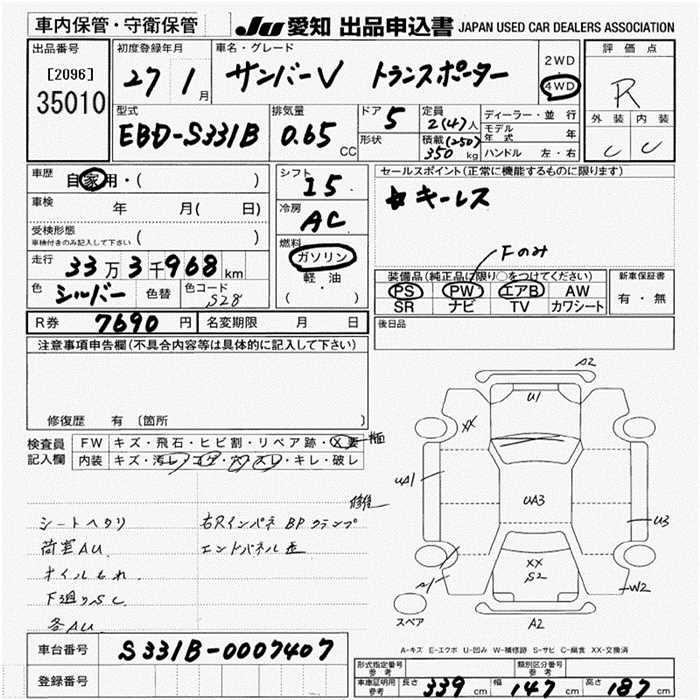 車内保管・守衛保管
JU 愛知 出品申込書 JAPAN USED CAR DEALERS ASSOCIATION
出品番号
[2096]
35010
初度登録年月
27 1月
車名・グレード
サンバーV トランスポーター
2WD
4WD
評価点
R
外装 内装
C C
型式
EBD-S331B
排気量
0.65 CC
ドア 5
形状
定員 2(4)人
積載(250)
350 kg
ディーラー・並行
モデル年式 年
ハンドル 左・右
車歴 自家用・( )
車検 年 月( 日)
受検形態
車検付きのみ記入して下さい ( )
走行 33万3千968km
色 シルバー 色替 色コード S28
シフト I5
冷房 AC
燃料
ガソリン
軽・油
( ・ )
セールスポイント(正常に機能するものに限ります)
キーレス
Fのみ
装備品(純正品に限り○をつけてください)
PS PW エアB AW
SR ナビ TV カワシート
新車保証書
有・無
R券 7690円 名変期限 月 日
後日品
注意事項申告欄(不具合内容等は具体的に記入して下さい)
修復歴 有〔箇所 〕
検査員記入欄
FW キズ・飛石・ヒビ割・リペア跡・X要
内装 キズ・汚レ・コゲ・穴・スレ・キレ・破レ
シートヘタリ
荷室AU
オイルもれ
下廻りSC
各AU
右Rインパネ BPクランプ
エンドパネル歪
修後
A2
U1
XX
UA1
UA3
U3
XX
S2
A1
W2
A2
スペア
A-キズ E-エクボ U-凹み W-補修跡 S-サビ C-腐食 XX-交換済
車台番号 S331B-0007407
登録番号
形式指定番号 参考
類別区分番号 参考
車庫証明用 参考 長さ 339cm 幅 147cm 高さ 187cm